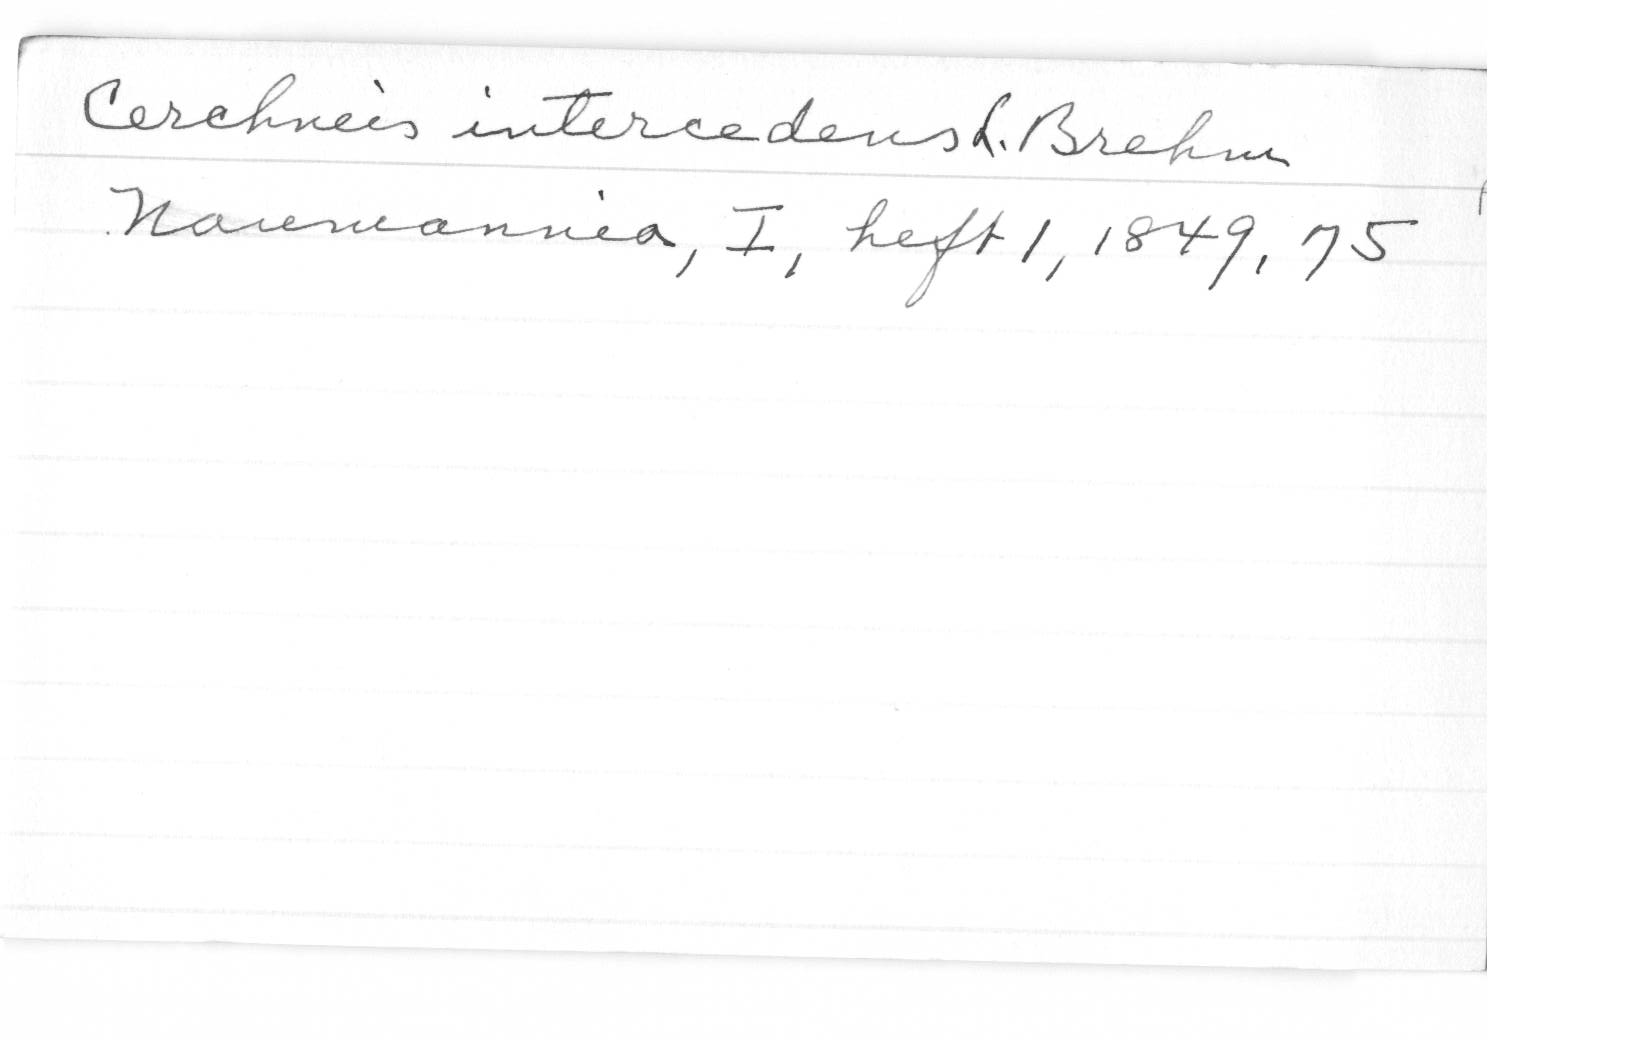 Cerchneis intercedens L. Brehm
Naumannia, I, heft 1, 1849, 75